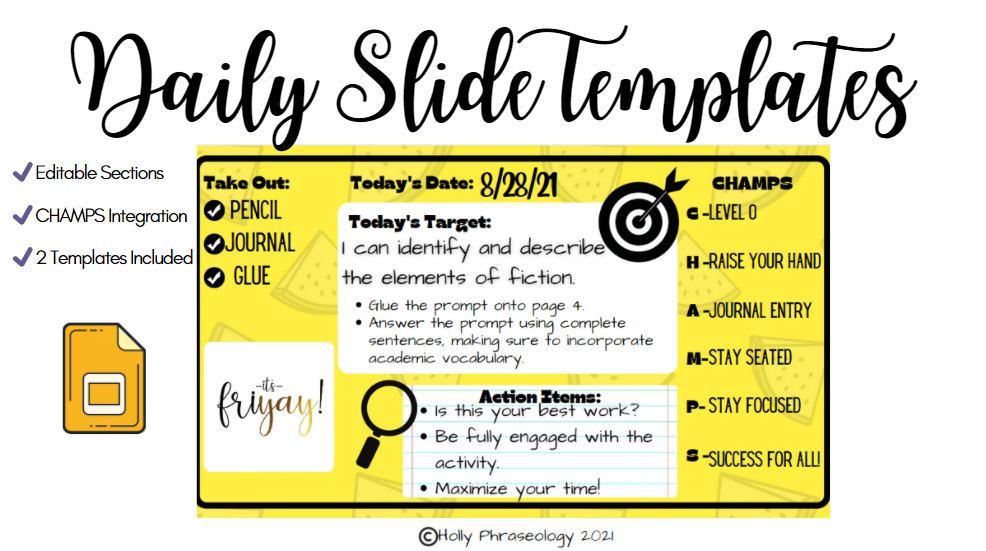 Daily Slide Templates
Editable Sections
CHAMPS Integration
2 Templates Included
Take Out:
PENCIL
JOURNAL
GLUE
-it's-
friyay!
Today's Date: 8/28/21
Today's Target:
I can identify and describe
the elements of fiction.
• Glue the prompt onto page 4.
• Answer the prompt using complete
sentences, making sure to incorporate
academic vocabulary.
Action Items:
• Is this your best work?
• Be fully engaged with the
activity.
• Maximize your time!
CHAMPS
C -LEVEL 0
H -RAISE YOUR HAND
A -JOURNAL ENTRY
M-STAY SEATED
P- STAY FOCUSED
S -SUCCESS FOR ALL!
©Holly Phraseology 2021